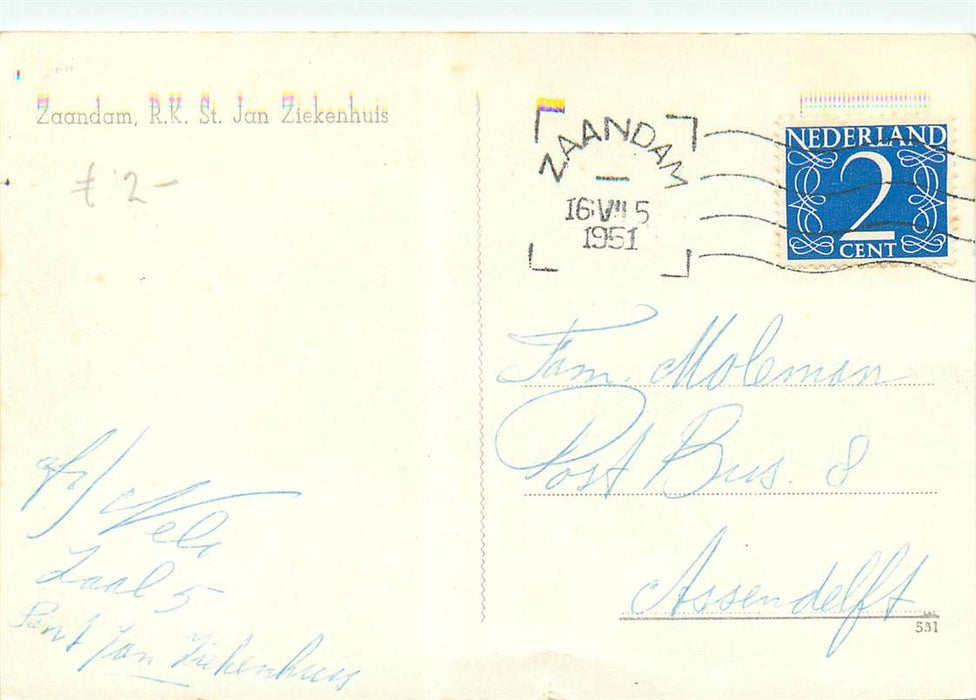 Zaandam, R.K. St. Jan Ziekenhuis
2-
ZAANDAM
16 VIII 5
1951
NEDERLAND
2
CENT
Fam. Moleman
Post Bus. 8
Assendelft
531
afz/ Nel
Zaal 5
Sint Jan Ziekenhuis